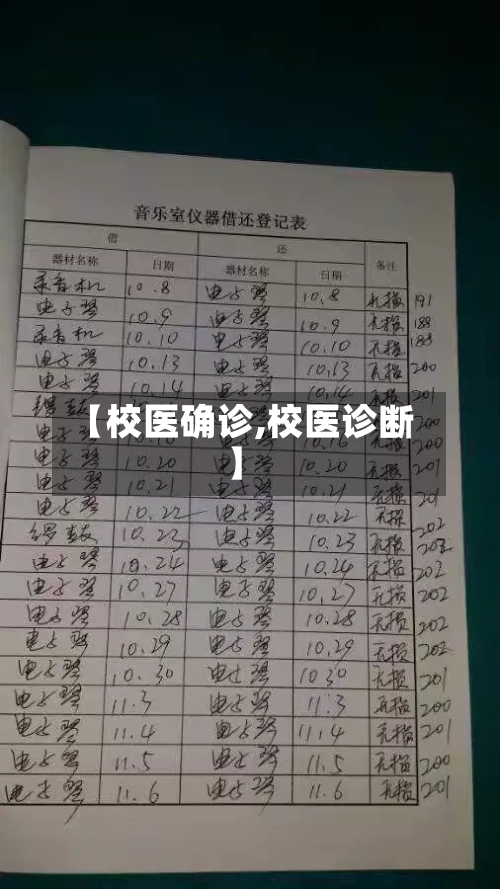 音乐室仪器借还登记表
借 还 备注
器材名称 日期 器材名称 日期
录音机 10.8 电子琴 10.8 无损 191
电子琴 10.9 电子琴 10.9 无损 188
录音机 10.10 电子琴 10.10 无损 188
电子琴 10.13 电子琴 10.13 无损 200
电子琴 10.14 电子琴 10.14 无损 201
【校医确诊,校医诊断
】
电子琴 10.20 电子琴 10.20 无损 201
电子琴 10.21 电子琴 10.21 无损 201
电子琴 10.22 电子琴 10.22 无损 202
锣鼓 10.23 电子琴 10.23 无损 202
电子琴 10.24 电子琴 10.24 无损 202
电子琴 10.27 电子琴 10.27 无损 202
电子琴 10.28 电子琴 10.28 无损 202
电子琴 10.29 电子琴 10.29 无损 202
电子琴 10.30 电子琴 10 30 无损 201
电子琴 11.3 电子琴 11.3 无损 200
电子琴 11.4 电子琴 11.4 无损 201
电子琴 11.5 电子琴 11.5 无损 200
电子琴 11.6 电子琴 11.6 无损 201